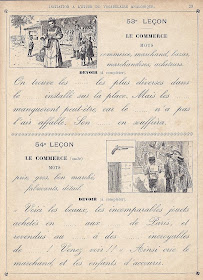 INITIATION A L'ÉTUDE DU VOCABULAIRE
53e LEÇON
LE COMMERCE
MOTS
commerce, marchand, bazar,
marchandises, acheteurs.
DEVOIR à compléter.
On trouve les — les plus diverses dans
le — installé sur la place. Mais les —
manqueront peut-être, car le — n'a pas
l'air affable. Son — en souffrira.
54e LEÇON
LE COMMERCE (suite)
MOTS
prix, gros, bon marché,
présenté, détail.
DEVOIR à compléter.
— Voici les beaux, les incomparables jouets
achetés en — aux — de Paris, et
revendus au — à des — incroyables
de — ! Venez voir !! — Ainsi crie le
marchand et les enfants d'accourir.